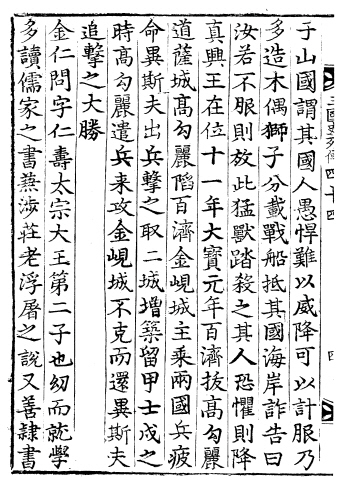 三國史列傳四十四
四
于山國謂其國人愚悍難以威降可以計服乃
多造木偶獅子分載戰船抵其國海岸詐告曰
汝若不服則放此猛獸踏殺之其人恐懼則降
真興王在位十一年大寶元年百濟拔高勾麗
道薩城高勾麗䧟百濟金峴城主乘兩國兵疲
命異斯夫出兵擊之取二城增築留甲士戍之
時高勾麗遣兵来攻金峴城不克而還異斯夫
追擊之大勝
金仁問字仁壽太宗大王第二子也幼而就學
多讀儒家之書兼涉莊老浮屠之說又善隸書